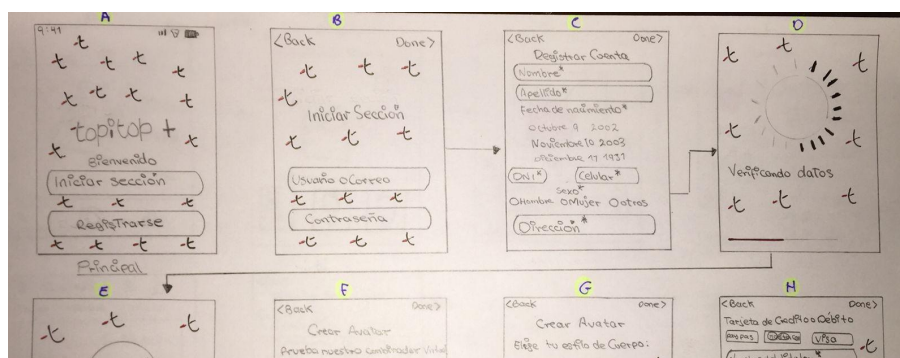 A
9:41
topitop +
Bienvenido
Iniciar sección
RegisTrarse
Principal
B
<Back Done>
Iniciar Sección
Usuario o Correo
Contraseña
C
<Back Done>
Registrar Cuenta
Nombre*
Apellido*
Fecha de nacimiento*
Octubre 9 2002
Noviembre 10 2003
DNI* Celular*
Sexo*
OHombre OMujer Ootros
Dirección*
D
Verificando datos
E
F
<Back Done>
Crear Avatar
Prueba nuestro
G
<Back Done>
Crear Avatar
Elige tu estilo de Cuerpo:
H
<Back Done>
Tarjeta de Credito o Débito
VISA